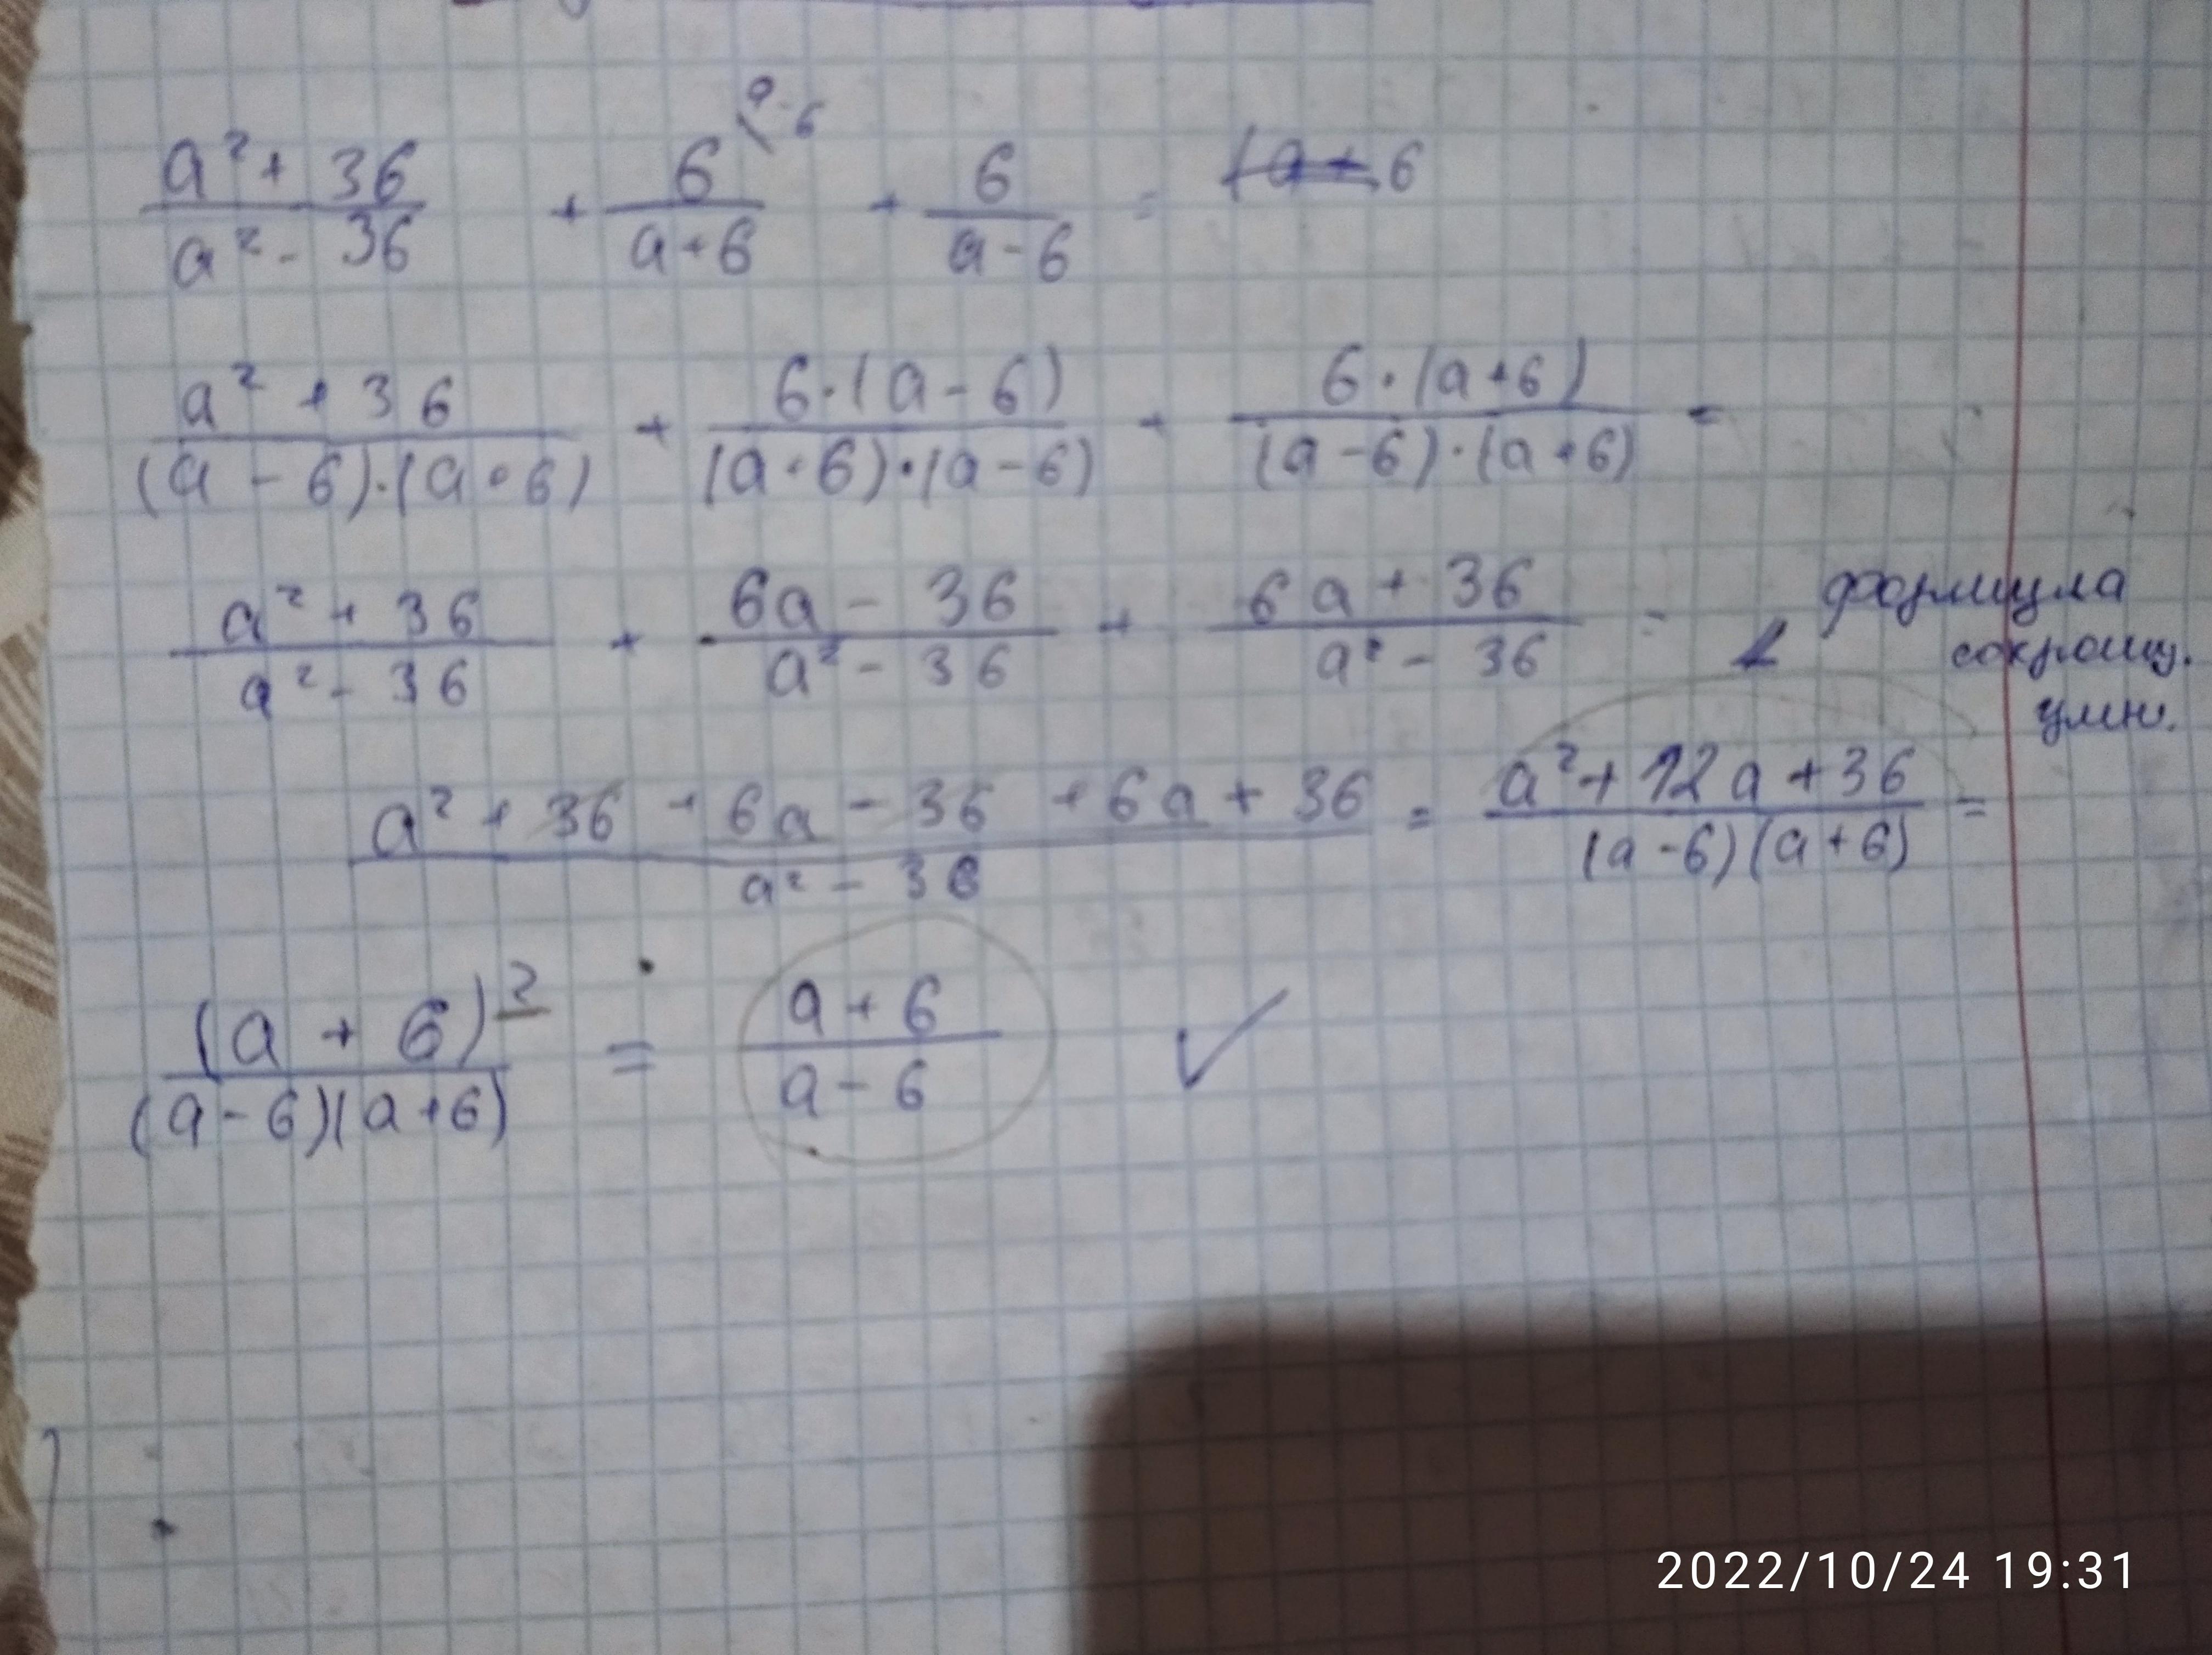 a² + 36 / a² - 36 + 6 \ a-6 / a+6 + 6 / a-6 =
a² + 36 / (a - 6)·(a+6) + 6·(a - 6) / (a+6)·(a-6) + 6·(a+6) / (a-6)·(a+6) =
a² + 36 / a² - 36 + 6a - 36 / a² - 36 + 6a + 36 / a² - 36 =
формула
сокращ.
умн.
a² + 36 + 6a - 36 + 6a + 36 / a² - 36 = a² + 12a + 36 / (a-6)(a+6) =
(a + 6)² / (a-6)(a+6) = a + 6 / a - 6 ✓
2022/10/24 19:31